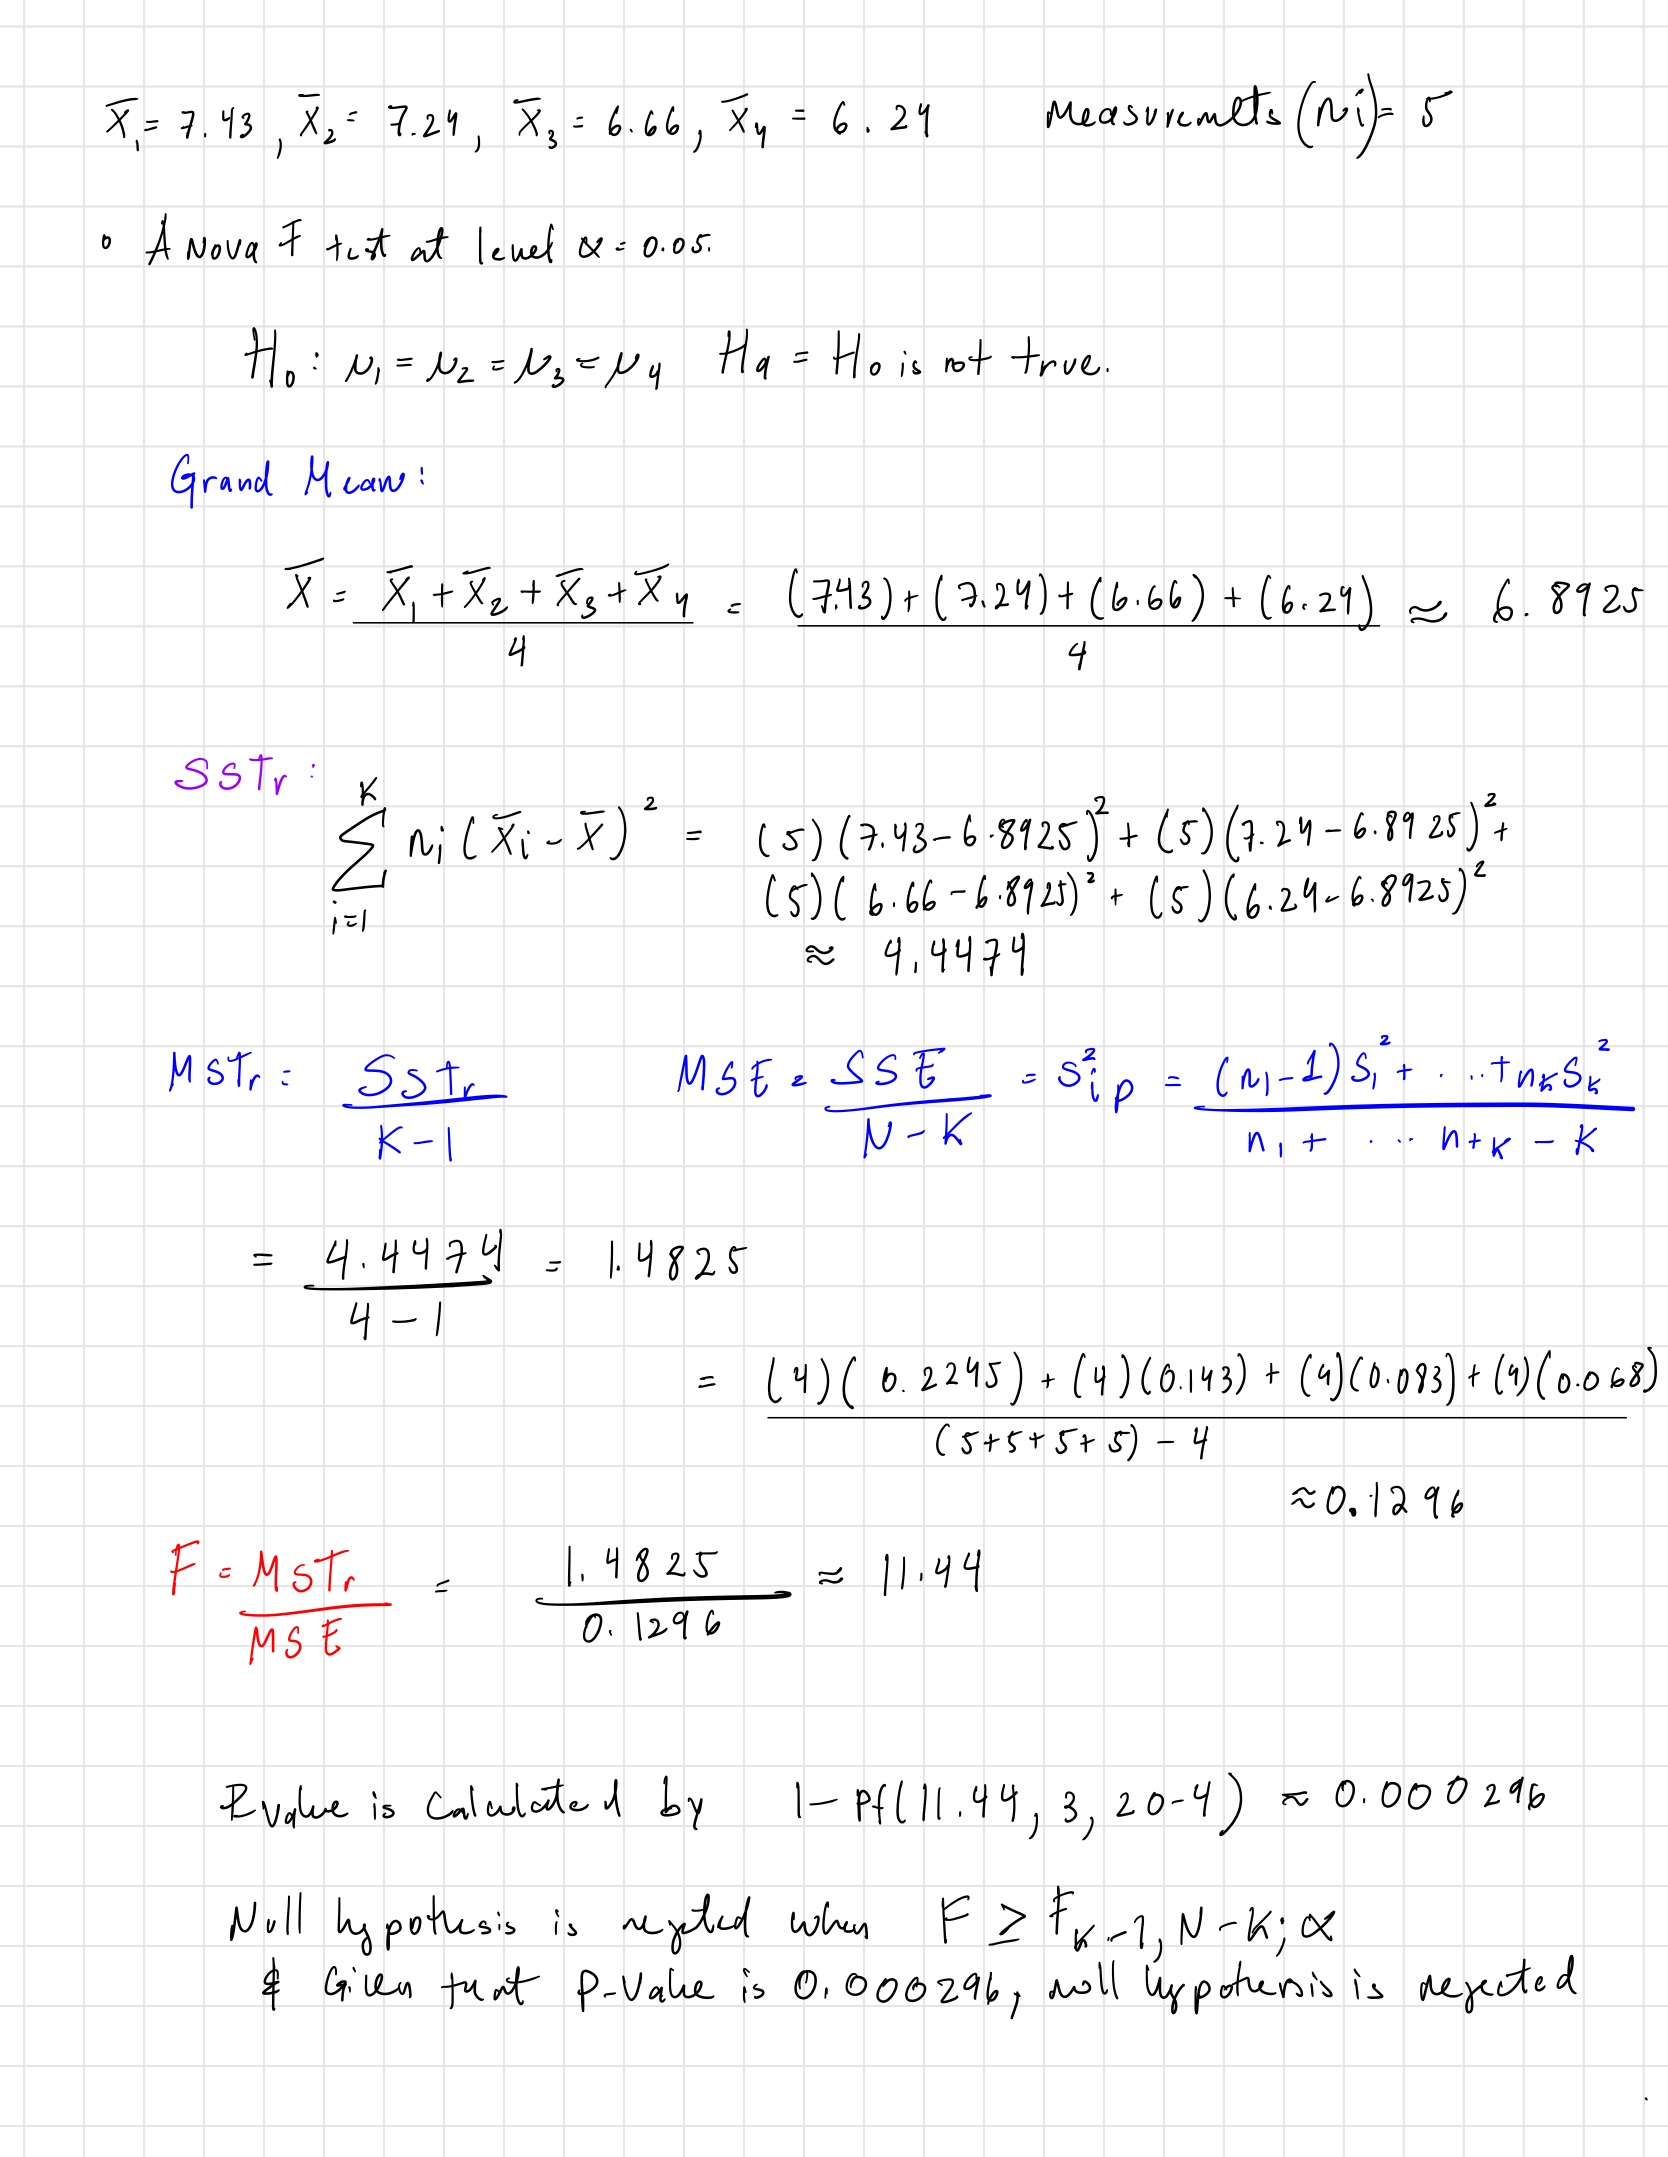 X̄₁ = 7.43 , X̄₂ = 7.24, X̄₃ = 6.66, X̄₄ = 6.24 Measuremets (ni) = 5
• ANova F test at level α = 0.05.
H₀ : μ₁ = μ₂ = μ₃ = μ₄ Ha = H₀ is not true.
Grand Mean:
X̄ = (X̄₁ + X̄₂ + X̄₃ + X̄₄)/4 = ((7.43) + (7.24) + (6.66) + (6.24))/4 ≈ 6.8925
SSTr :
∑ᵢ₌₁ᴷ ni (X̄i - X̄)² = (5)(7.43 - 6.8925)² + (5)(7.24 - 6.8925)² +
(5)(6.66 - 6.8925)² + (5)(6.24 - 6.8925)²
≈ 4.4474
MSTr = SSTr/(K-1) MSE = SSE/(N-K) = S²ip = ((n₁-1)S₁² + ... + nₖSₖ²)/(n₁ + ... n+ₖ - K)
= 4.4474/(4-1) = 1.4825
= ((4)(0.2245) + (4)(0.143) + (4)(0.083) + (4)(0.068))/((5+5+5+5) - 4)
≈ 0.1296
F = MSTr/MSE = 1.4825/0.1296 ≈ 11.44
Pvalue is Calculated by 1 - pf(11.44, 3, 20-4) ≈ 0.000296
Null hypothesis is rejected when F ≥ F K-1, N-K; α
& Given that P-Value is 0.000296, null hypothesis is rejected